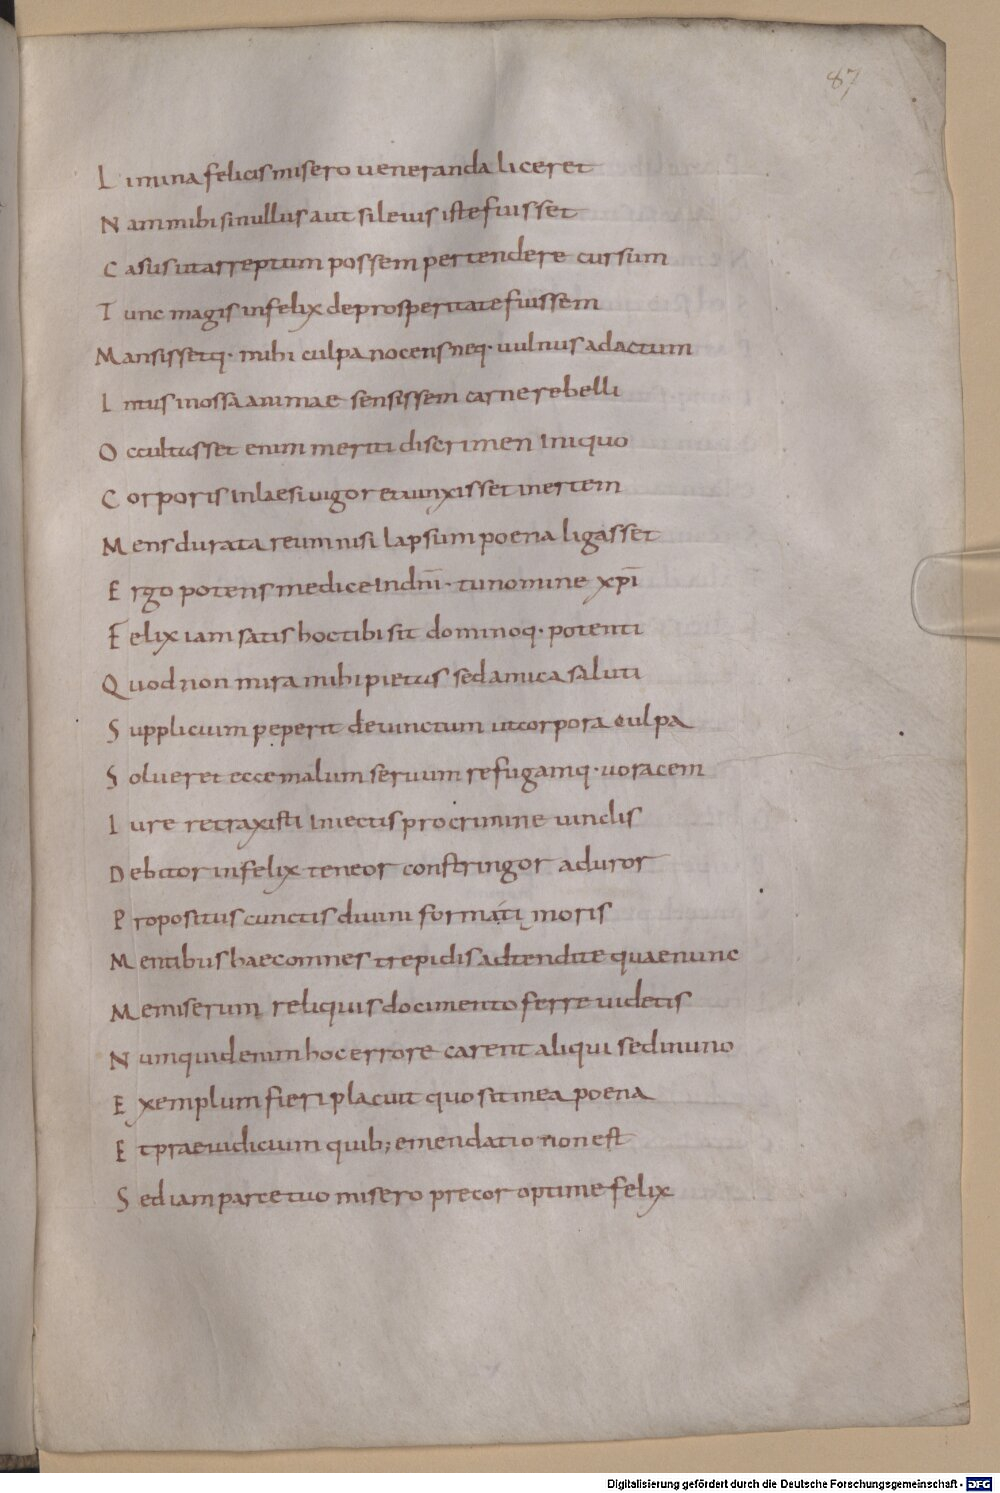 87
Limina felicis misero ueneranda liceret
Nam mihi si nullus aut si leuis iste fuisset
Casus ut arreptum possem pertendere cursum
Tunc magis infelix de prosperitate fuissem
Mansissetq· mihi culpa nocens neq· uulnus adactum
Intus in ossa animae sensissem carne rebelli
Occultusset enim meriti discrimen iniquo
Corporis inlaesi uigor et
Mens durata reum nisi lapsum poena ligasset
Ergo potens medice in dn̄i· tu nomine xp̄i
Felix iam satis hoc tibi sit dominoq· potenti
Quod non mira mihi pietus sed amica saluti
Supplicium peperit deuinctum ut corpora culpa
Solueret ecce malum seruum refugamq· uoracem
Iure retraxisti iniectis pro crimine uinclis
Debitor infelix teneor constringor aduror
Propositus cunctis diuini moris
Mentibus haec omnes trepidis adtendite quae nunc
Me miserum reliquis documento ferre uidetis
Numquid enim hoc errore carent aliqui sed in uno
Exemplum fieri placuit quo sit mea poena
Et praeiudicium quib; emendatio non est
Sed iam parce tuo misero precor optime felix
Digitalisierung gefördert durch die Deutsche Forschungsgemeinschaft - DFG